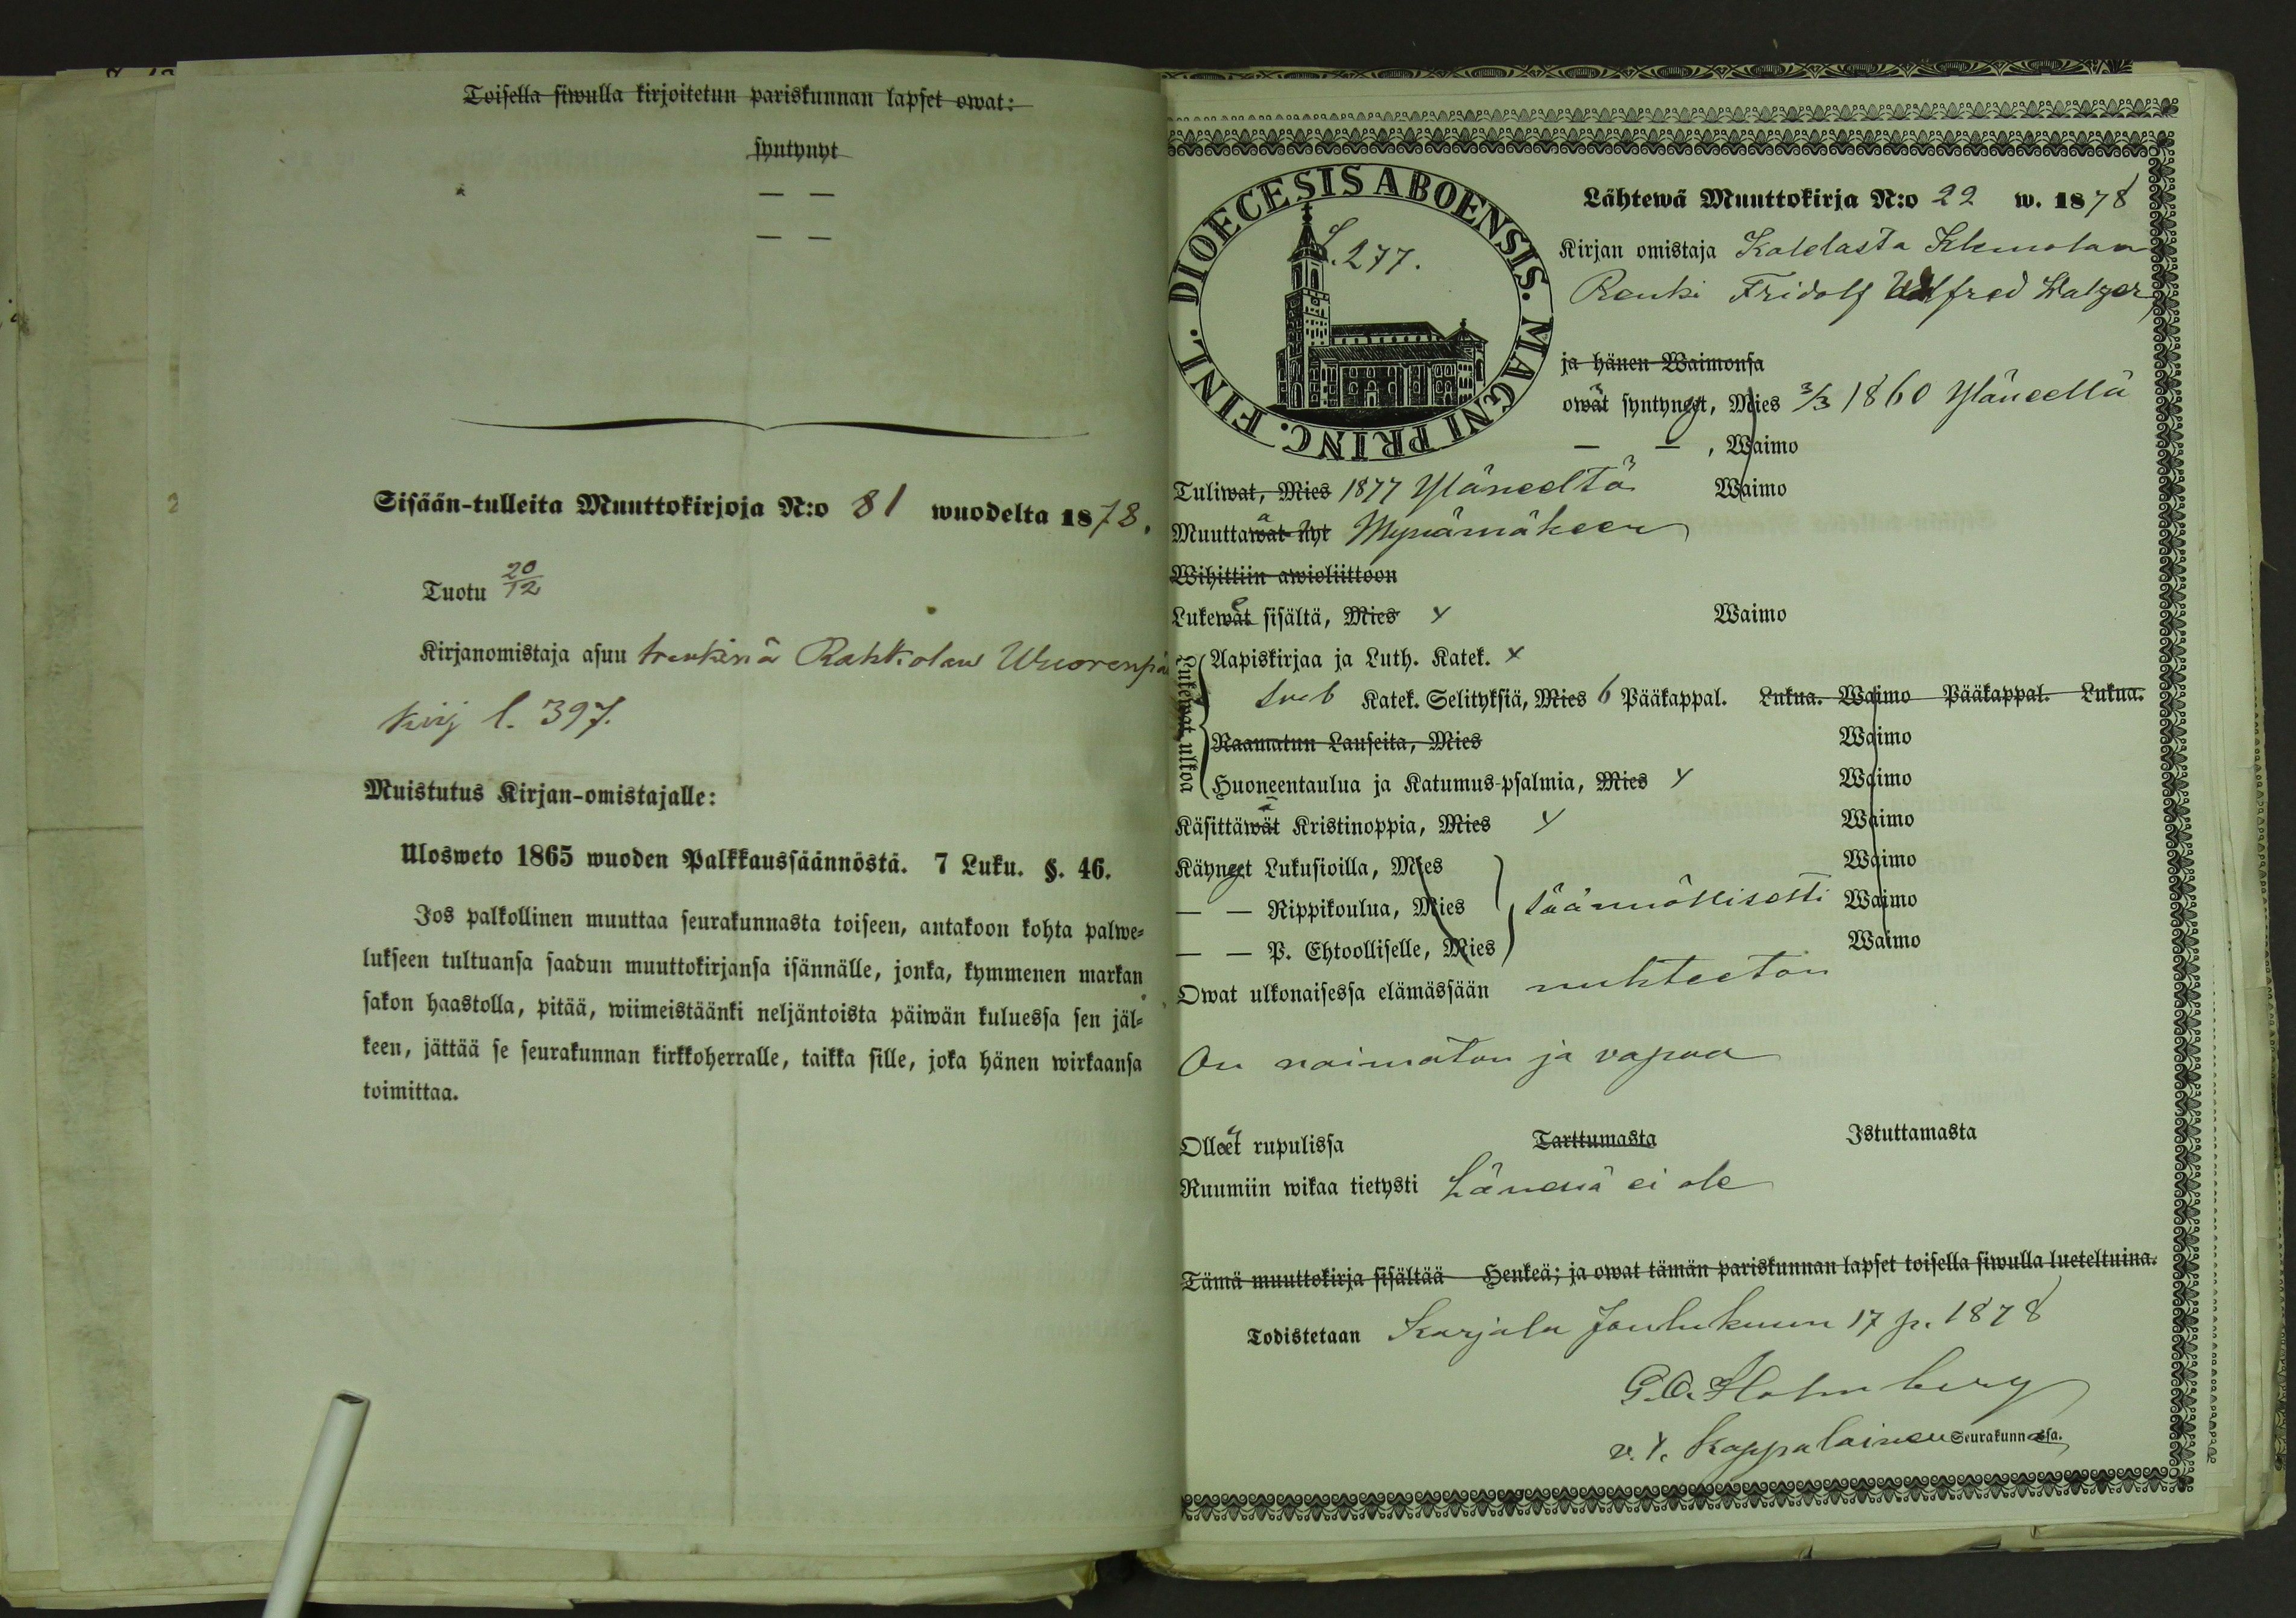 Toisella siwulla kirjoitetun pariskunnan lapset owat:
syntynyt
— —
— —
Sisään-tulleita Muuttokirjoja N:o 81 wuodelta 1878.
Tuotu 20/12
Kirjanomistaja asuu trenkinä Rahkolan Wuorenpää
kirj l. 397.
Muistutus Kirjan-omistajalle:
Ulosweto 1865 wuoden Palkkaussäännöstä. 7 Luku. §. 46.
Jos palkollinen muuttaa seurakunnasta toiseen, antakoon kohta palwe=
lukseen tultuansa saadun muuttokirjansa isännälle, jonka, kymmenen markan
sakon haastolla, pitää, wiimeistäänki neljäntoista päiwän kuluessa sen jäl=
keen, jättää se seurakunnan kirkkoherralle, taikka sille, joka hänen wirkaansa
toimittaa.
DIOECESIS ABOENSIS. MAGNI PRINC. FINL.
S. 277.
Lähtewä Muuttokirja N:o 22 w. 1878
Kirjan omistaja Kaldasta Klemolan
Renki Fridolf Wilfred
ja hänen Waimonsa
owat syntyneet, Mies 3/3 1860 Yläneellä
— — , Waimo
Tuliwat, Mies 1877 Yläneeltä Waimo
Muuttawat nyt Mynämäkeen
Wihittiin awioliittoon
Lukewat sisältä, Mies x Waimo
Lukewat ulkoa
Aapiskirjaa ja Luth. Katek. x
Sveb Katek. Selityksiä, Mies 6 Pääkappal. Lukua. Waimo Pääkappal. Lukua.
Raamatun Lauseita, Mies Waimo
Huoneentaulua ja Katumus-psalmia, Mies x Waimo
Käsittäwät Kristinoppia, Mies x Waimo
Käyneet Lukusioilla, Mies Waimo
— — Rippikoulua, Mies säännöllisesti Waimo
— — P. Ehtoolliselle, Mies Waimo
Owat ulkonaisessa elämässään nuhteeton
On naimaton ja vapaa
Olleet rupulissa Tarttumasta Istuttamasta
Ruumiin wikaa tietysti hänessä ei ole
Tämä muuttokirja sisältää Henkeä; ja owat tämän pariskunnan lapset toisella siwulla lueteltuina.
Todistetaan Karjala Joulukuun 17 p. 1878
G. O. Holmberg
v. t. Kappalainen Seurakunnassa.